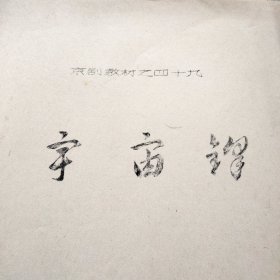 京剧教材之四十九
宇宙锋